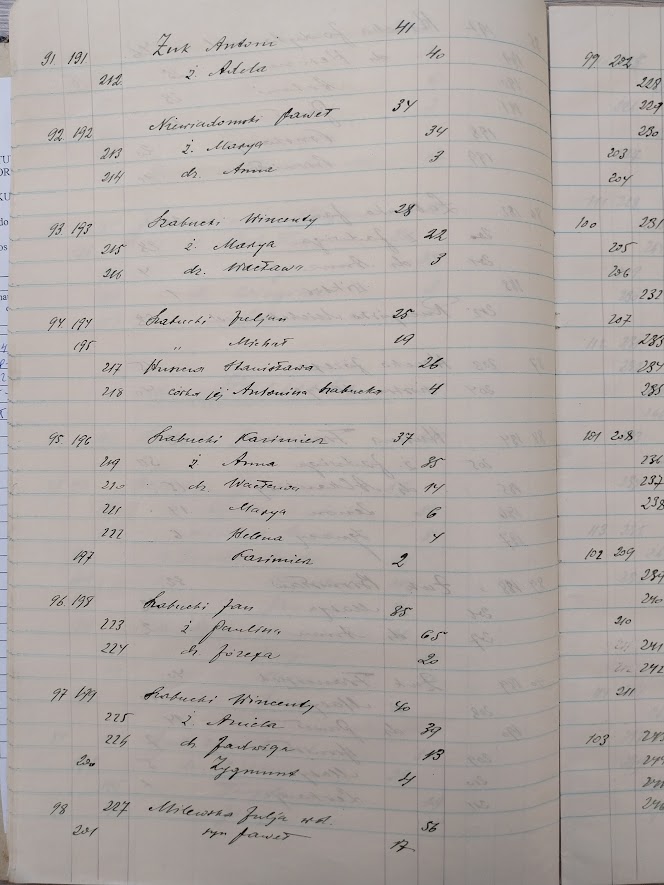 91 191 Żuk Antoni 41
212 ż. Adela 40
92. 192 Niewiadomski Paweł 34
213 ż. Marya 34
214 dz. Anna 3
93. 193 Szabucki Wincenty 28
215 ż. Marya 22
216 dz. Wacława 3
94 194 Szabucki Juljan 25
195 „ Michał 19
217 Stanisława 26
218 córka jej Antonina Szabucka 4
95. 196 Szabucki Kazimierz 37
219 ż Anna 35
220 dz. Wacława 14
221 Marya 6
222 Helena 4
197 Kazimierz 2
96. 198 Szabucki Jan 85
223 ż Paulina 65
224 dz Józefa 20
97 199 Szabucki Wincenty 40
225 ż Aniela 39
226 dz Jadwiga 13
200 Zygmunt 4
98 227 Milewska Julja wd. 56
201 syn Paweł 17
99 202
228
229
230
203
204
100 231
205
206
232
207
233
234
235
101 208
236
237
238
102 209
239
240
210
241
242
211
103